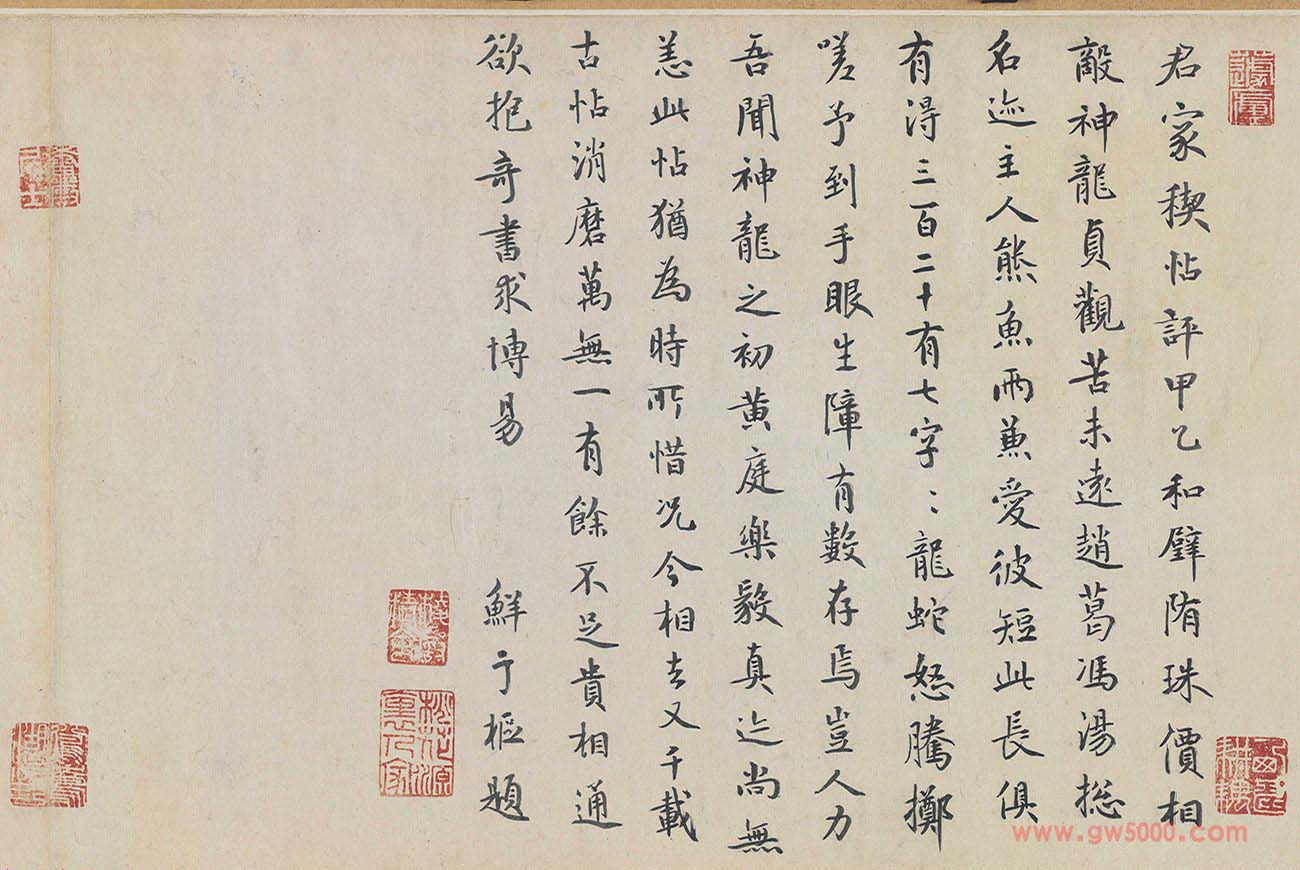 君家稧帖評甲乙和璧隋珠價相
敵神龍貞觀苦未遠趙葛馮湯揔
名迹主人熊魚兩兼愛彼短此長俱
有得三百二十有七字〻龍蛇怒騰擲
嗟予到手眼生障有數存焉豈人力
吾聞神龍之初黃庭樂毅真迹尚無
恙此帖猶為時所惜況今相去又千載
古帖消磨萬無一有餘不足貴相通
欲抱奇書求博易
鮮于樞題
www.gw5000.com